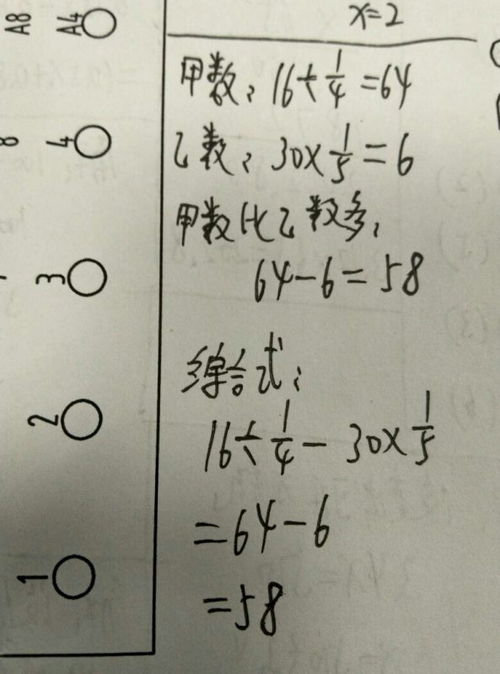 x=2
甲数: 16÷1/4=64
乙数: 30×1/5=6
甲数比乙数多:
64-6=58
综合式:
16÷1/4-30×1/5
=64-6
=58
A8
A4
8
4
3
2
1